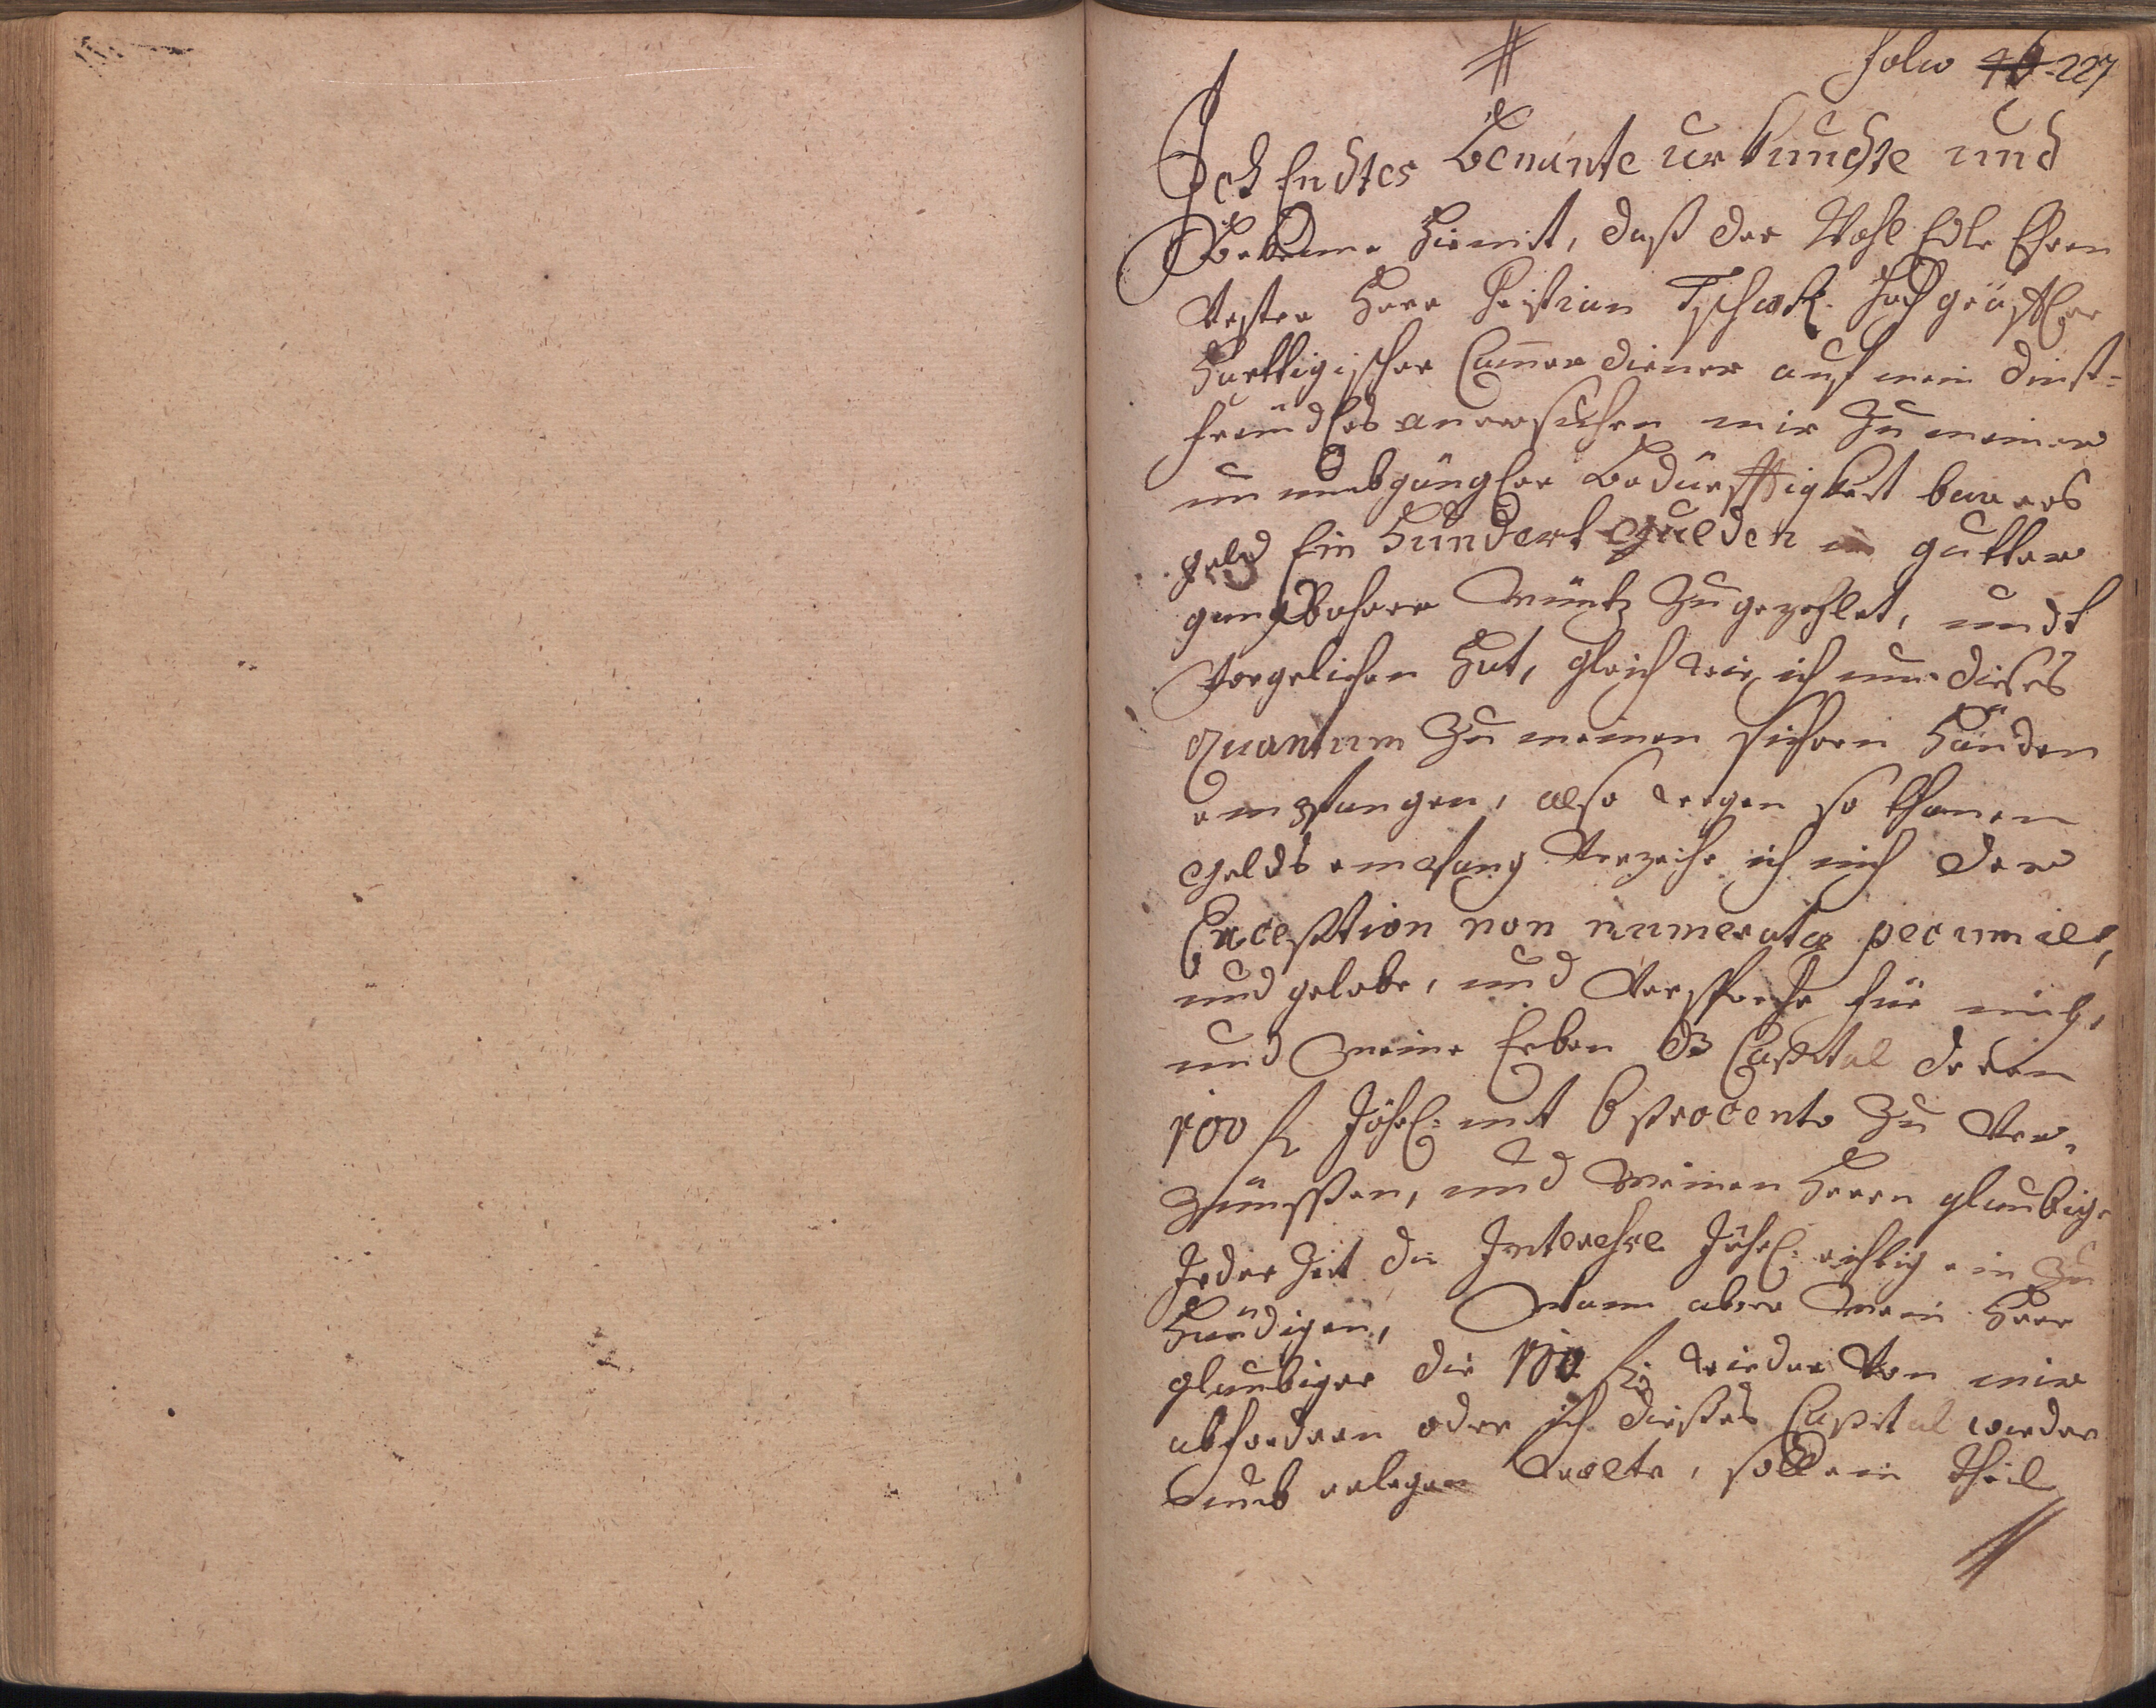 folio 46. 227
Ich Endtes Benante urkundte und
Bekenne Hiemit, daß der Wohl Edle Ehren
Vester Herr Christian Hochgräffler
Harttigischer Cammer diener auf mein dinst-
freundles anersuchen mir zu meiner
un umbgänglen Bedürfftigkeit bares
geld Ein Hundert Gulden in gutter
gangbahrer Müntz zugezehlet, undt
Vorgeliehen Hat, gleich wie ich nun dieses
quantum zu meinen sichern Händen
empfangen, also wegen so thanen
gelds empfang Verzeihe ich mich der
Exception non numeratæ pecuniæ,
und gelobe, und Verspreche für mich,
und meine Erben dz Capital deren
100 fl Jährl: mit 6 procento zu Ver-
zünssen, und meinen Herrn glaubiger
Jeder Zeit die Interesse Jährl: richtig ein zu
Händigen, Wann aber mein Herr
glaubiger die 100 fl wieder Von mir
abfordern oder ich dießes Capital wieder
erlegen wolte, soll ein theil